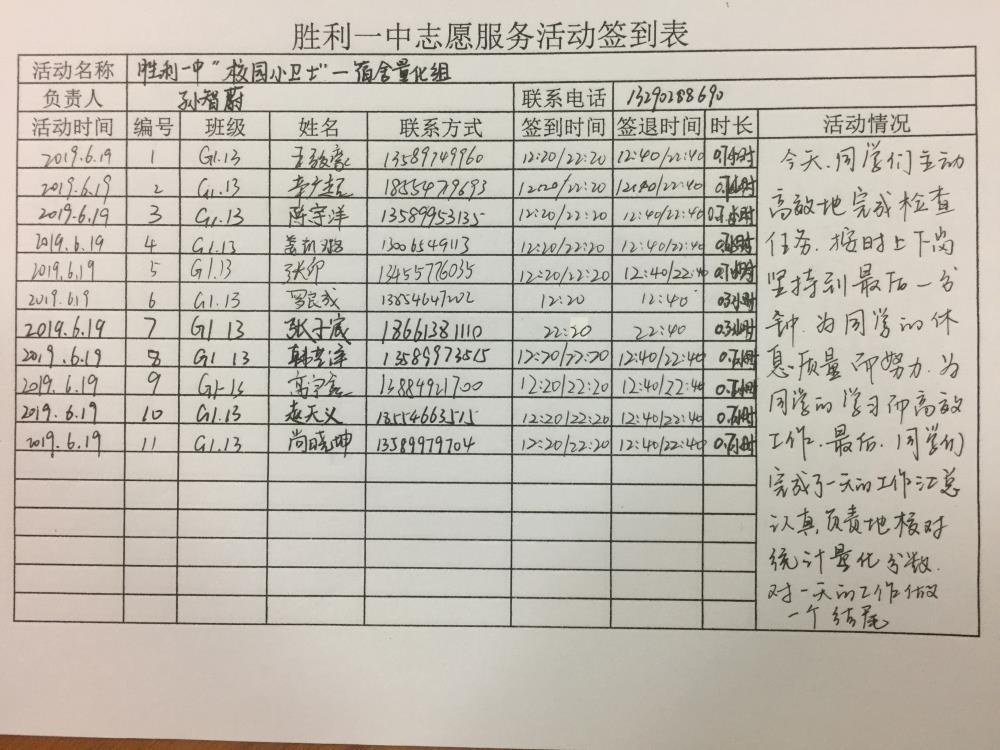 胜利一中志愿服务活动签到表
活动名称 胜利一中"校园小卫士"一宿舍量化组
负责人 孙智蔚 联系电话 13290288690
活动时间 编号 班级 姓名 联系方式 签到时间 签退时间 时长 活动情况
2019.6.19 1 G1.13 13589749960 12:20/22:20 12:40/22:40
2019.6.19 2 G1.13 18554719693 1220/22:20 12:40/22:40
2019.6.19 3 G1.13 陈宇洋 13589953135 12:20/22:20 12:40/22:40
2019.6.19 4 G1.13 13006549113 12:20/22:20 12:40/22:40
2019.6.19 5 G1.13 13455776035 12:20/22:20 12:40/22:40
2019.619 6 G1.13 罗良成 13854647202 12:20 12:40
2019.6.19 7 G1 13 张子宬 18661381110 22:20 22:40
2019.6.19 8 G1 13 13589973515 12:20/22:20 12:40/22:40
2019.6.19 9 G1.13 13884921700 12:20/22:20 12:40/22:40
2019.6.19 10 G1.13 赵天义 18554663515 12:20/22:20 12:40/22:40
2019.6.19 11 G1.13 尚晓坤 13589979704 12:20/22:20 12:40/22:40
今天,同学们主动
高效地完成检查
任务.按时上下岗
坚持到最后一分
钟.为同学的休
息质量而努力.为
同学的学习而高效
工作.最后.同学们
完成了一天的工作汇总
认真负责地核对
统计量化分数.
对一天的工作做
一个结尾